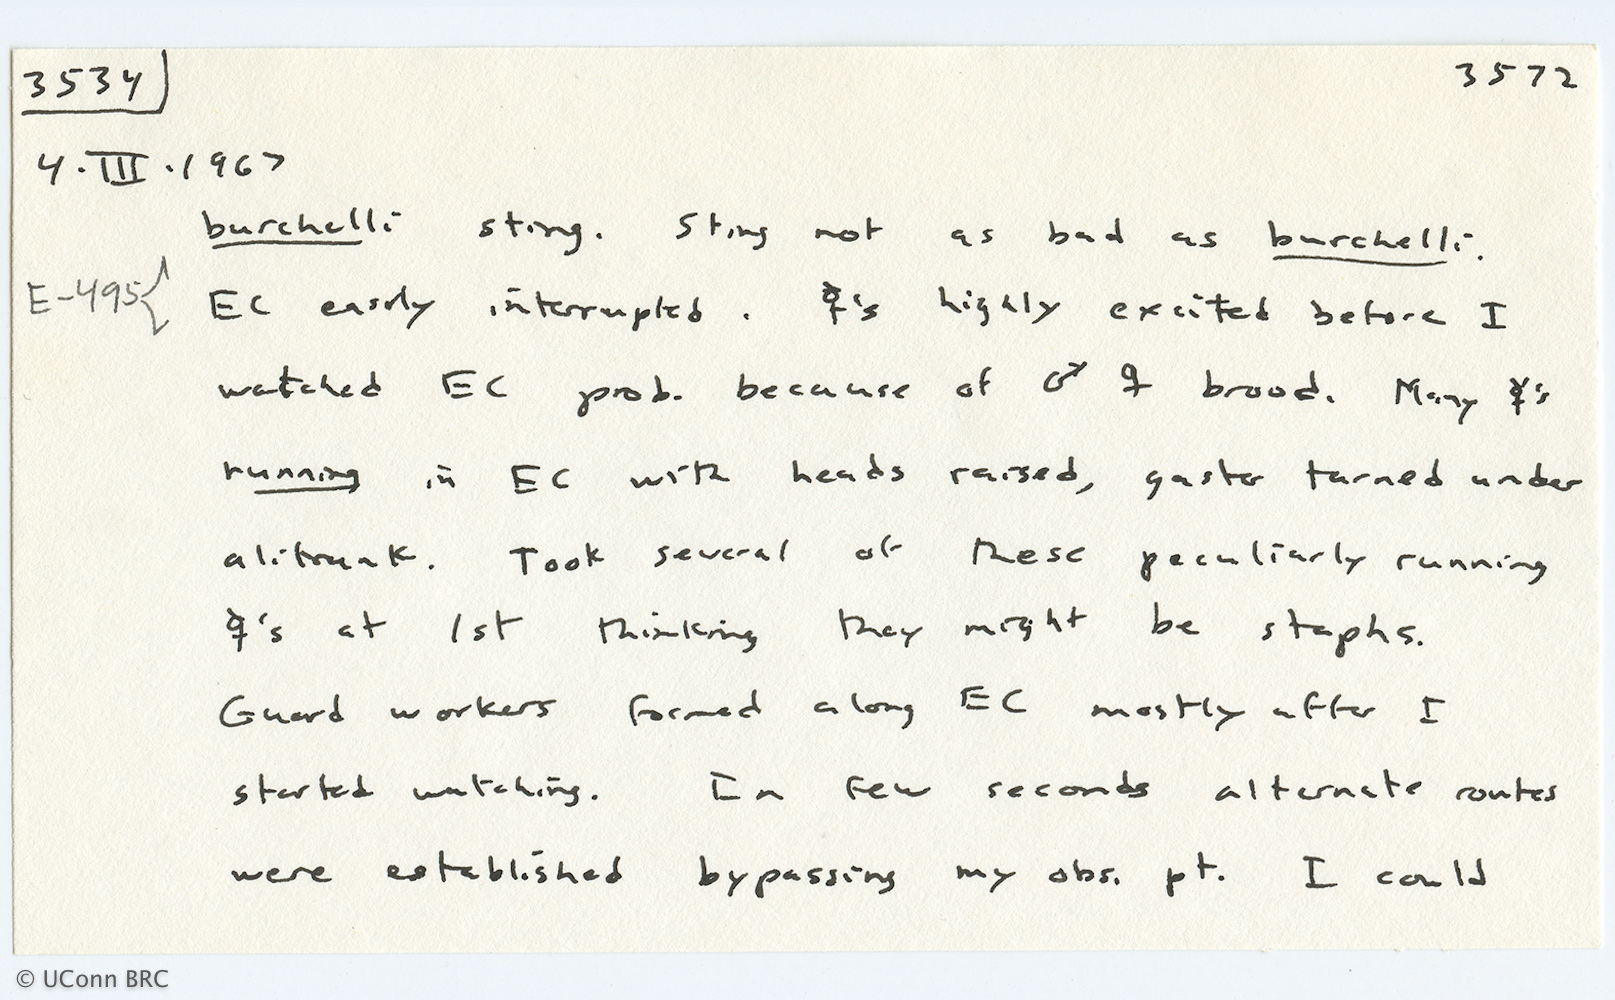 3534 3572
4.III.1967
burchelli sting. Sting not as bad as burchelli.
E-495{ EC easily interrupted. ☿'s highly excited before I
watched EC prob. because of ♂ ♀ brood. Many ☿'s
running in EC with heads raised, gaster turned under
alitrunk. Took several of these peculiarly running
☿'s at 1st thinking they might be staphs.
Guard workers formed along EC mostly after I
started watching. In few seconds alternate routes
were established bypassing my obs. pt. I could
© UConn BRC